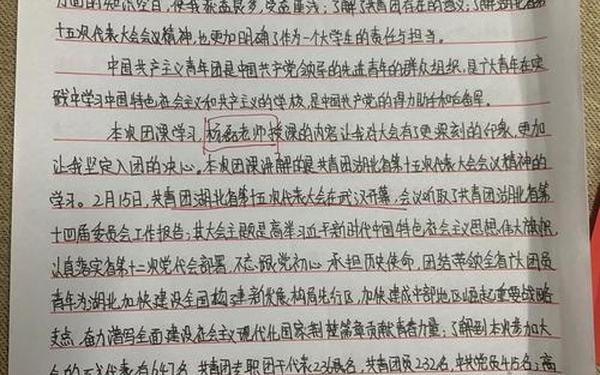 方面的知识空白,使我获益良多,受益匪浅;了解了共青团存在的意义;了解湖北省第
十五次代表大会会议精神,也更加明确了作为一个大学生的责任与担当。
中国共产主义青年团是中国共产党领导的先进青年的群众组织,是广大青年在实
践中学习中国特色社会主义和共产主义的学校,是中国共产党的得力助手和后备军。
本次团课学习,老师授课的内容让我对大会有了更深刻的印象,更加
让我坚定入团的决心。本次团课讲解的是共青团湖北省第十五次代表大会会议精神的
学习。2月15日,共青团湖北省第十五次代表大会在武汉开幕,会议听取了共青团湖北省第
十四届委员会工作报告;其大会主题是高举习近平新时代中国特色社会主义思想伟大旗帜,
认真落实省第十二次党代会部署,不忘跟党初心,承担历史使命,团结带领全省广大团员
青年为湖北加快建设全国构建新发展格局先行区,加快建成中部地区崛起重要战略
支点,奋力谱写全面建设社会主义现代化国家荆楚篇章贡献青春力量;了解到本次参加大
会的正式代表有647名,共青团专职团干代表236名,共青团员232名,中共党员415名;高